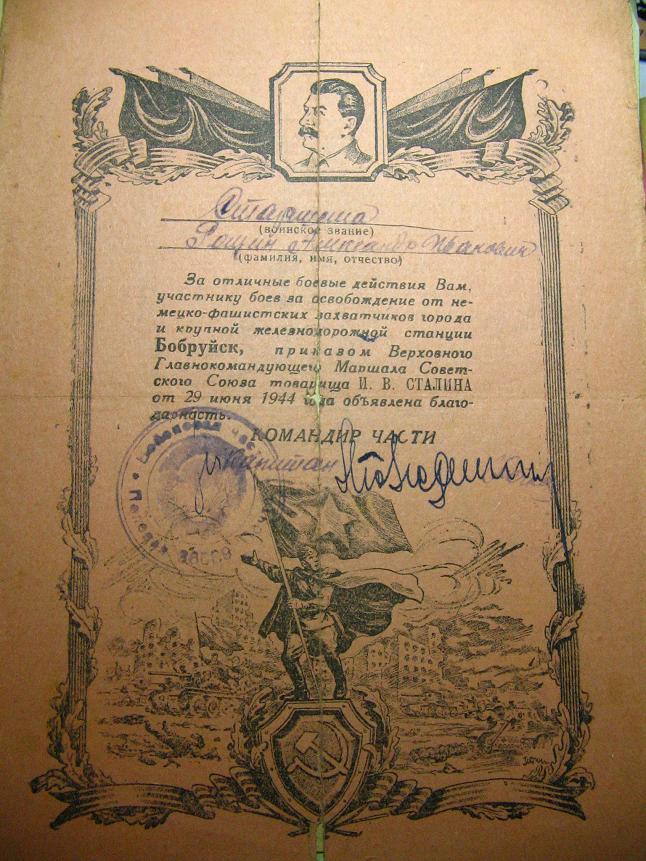 Старшина
(воинское звание)
Рощин Александр Иванович
(фамилия, имя, отчество)
За отличные боевые действия Вам,
участнику боев за освобождение от не-
мецко-фашистских захватчиков города
и крупной железнодорожной станции
Бобруйск, приказом Верховного
Главнокомандующего Маршала Совет-
ского Союза товарища И. В. СТАЛИНА
от 29 июня 1944 года объявлена благо-
дарность.
КОМАНДИР ЧАСТИ
капитан
Полевая